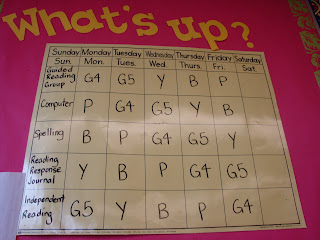 What's up?
Sunday Monday Tuesday Wednesday Thursday Friday Saturday
Sun. Mon. Tues. Wed. Thurs. Fri. Sat.
Guided
Reading
Group
G4 G5 Y B P
Computer P G4 G5 Y B
Spelling B P G4 G5 Y
Reading
Response
Journal
Y B P G4 G5
Independent
Reading
G5 Y B P G4